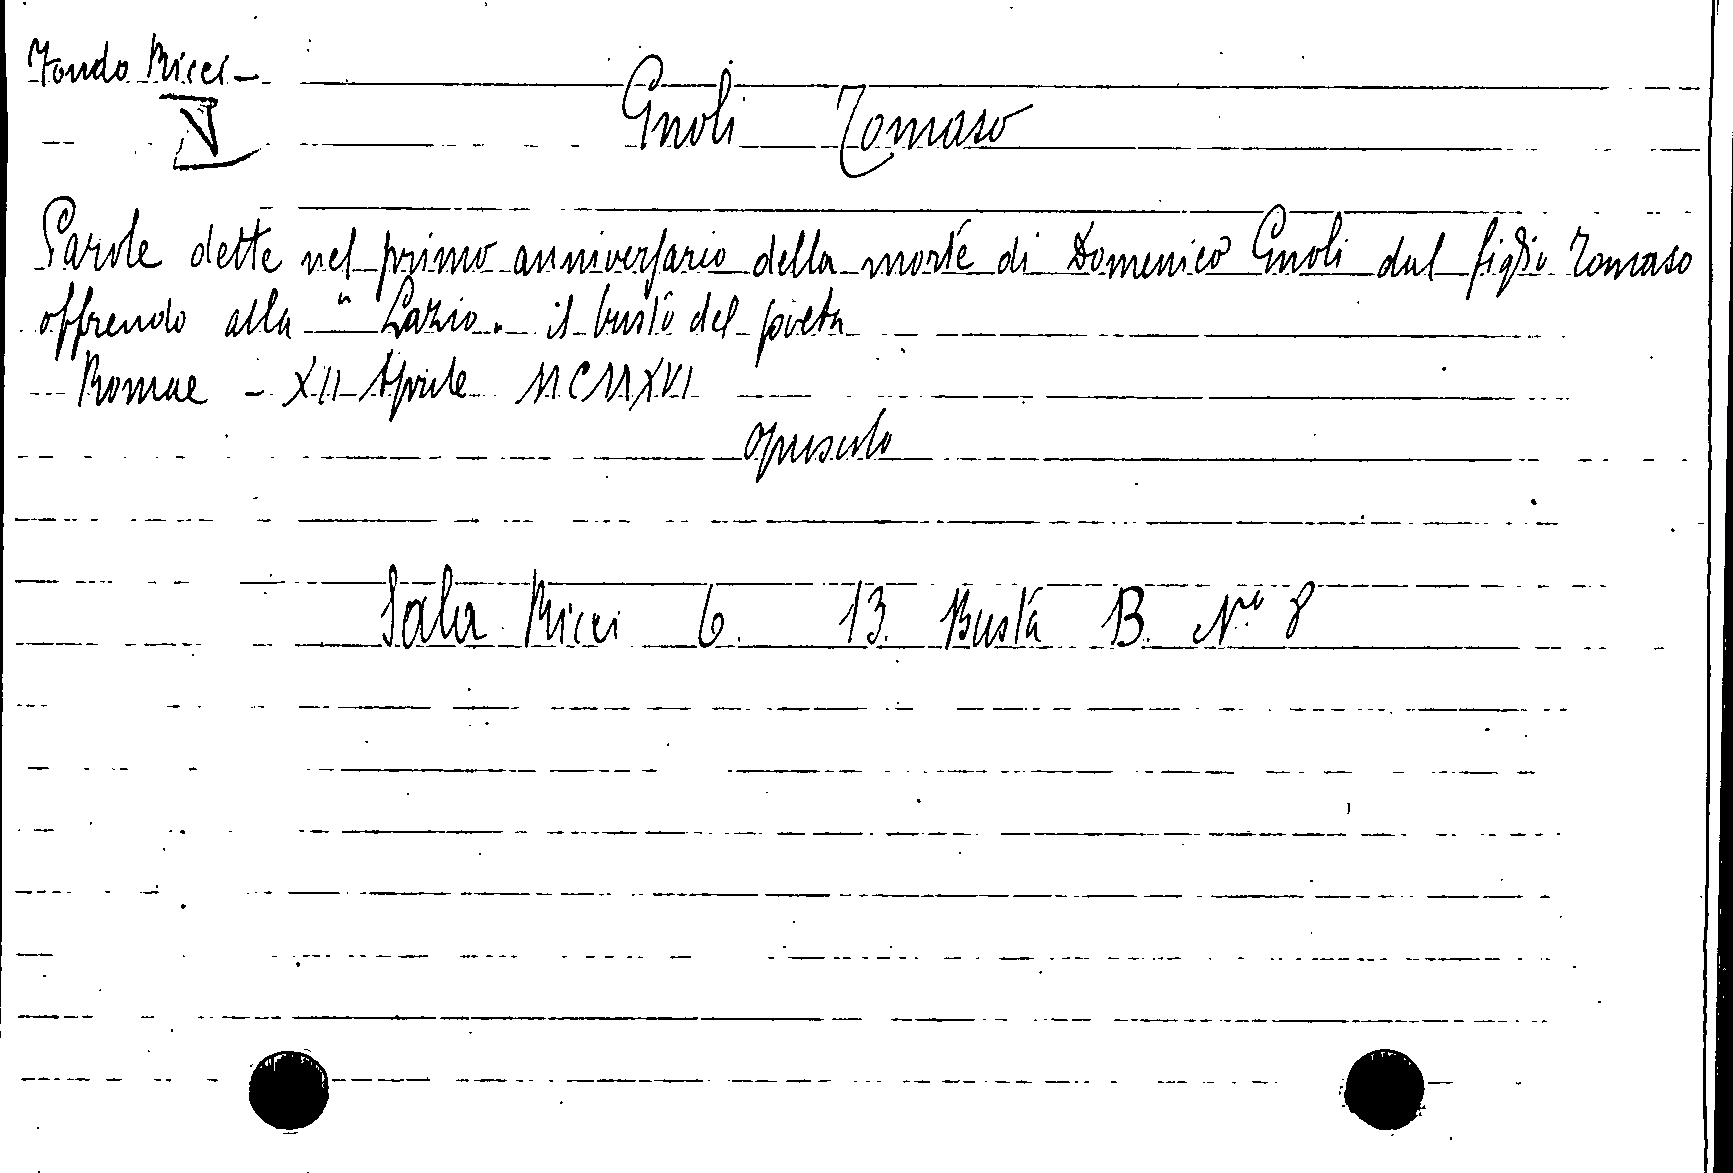 Fondo Ricci -
V
Gnoli Tomaso
Parole dette nel primo anniversario della morte di Domenico Gnoli dal figlio Tomaso
offrendo alla " Lazio " il busto del poeta
Romae - XII Aprile MCMXVI
opuscolo
Sala Ricci 6. 13. Busta B. Nº 8